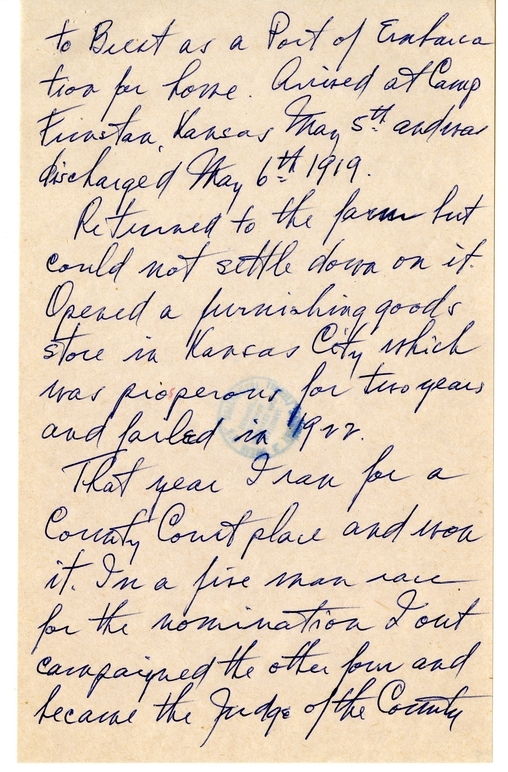 to Brest as a Port of Embarca
tion for home. Arrived at Camp
Funston, Kansas May 5th and was
discharged May 6th 1919.
Returned to the farm but
could not settle down on it.
Opened a furnishing goods
store in Kansas City which
was prosperous for two years
and failed in 1922.
That year I ran for a
County Court place and won
it. In a five man race
for the nomination I out
campaigned the other four and
became the Judge of the County